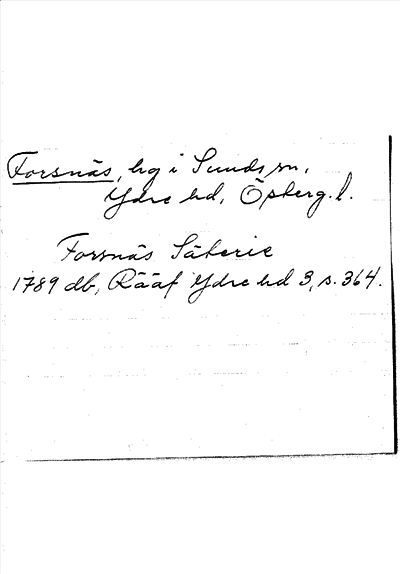 Forsnäs, hg i Sunds sn,
Ydre hd, Österg. l.
Forsnäs Säterie
1789 db, Rääf Ydre hd 3, s. 364.